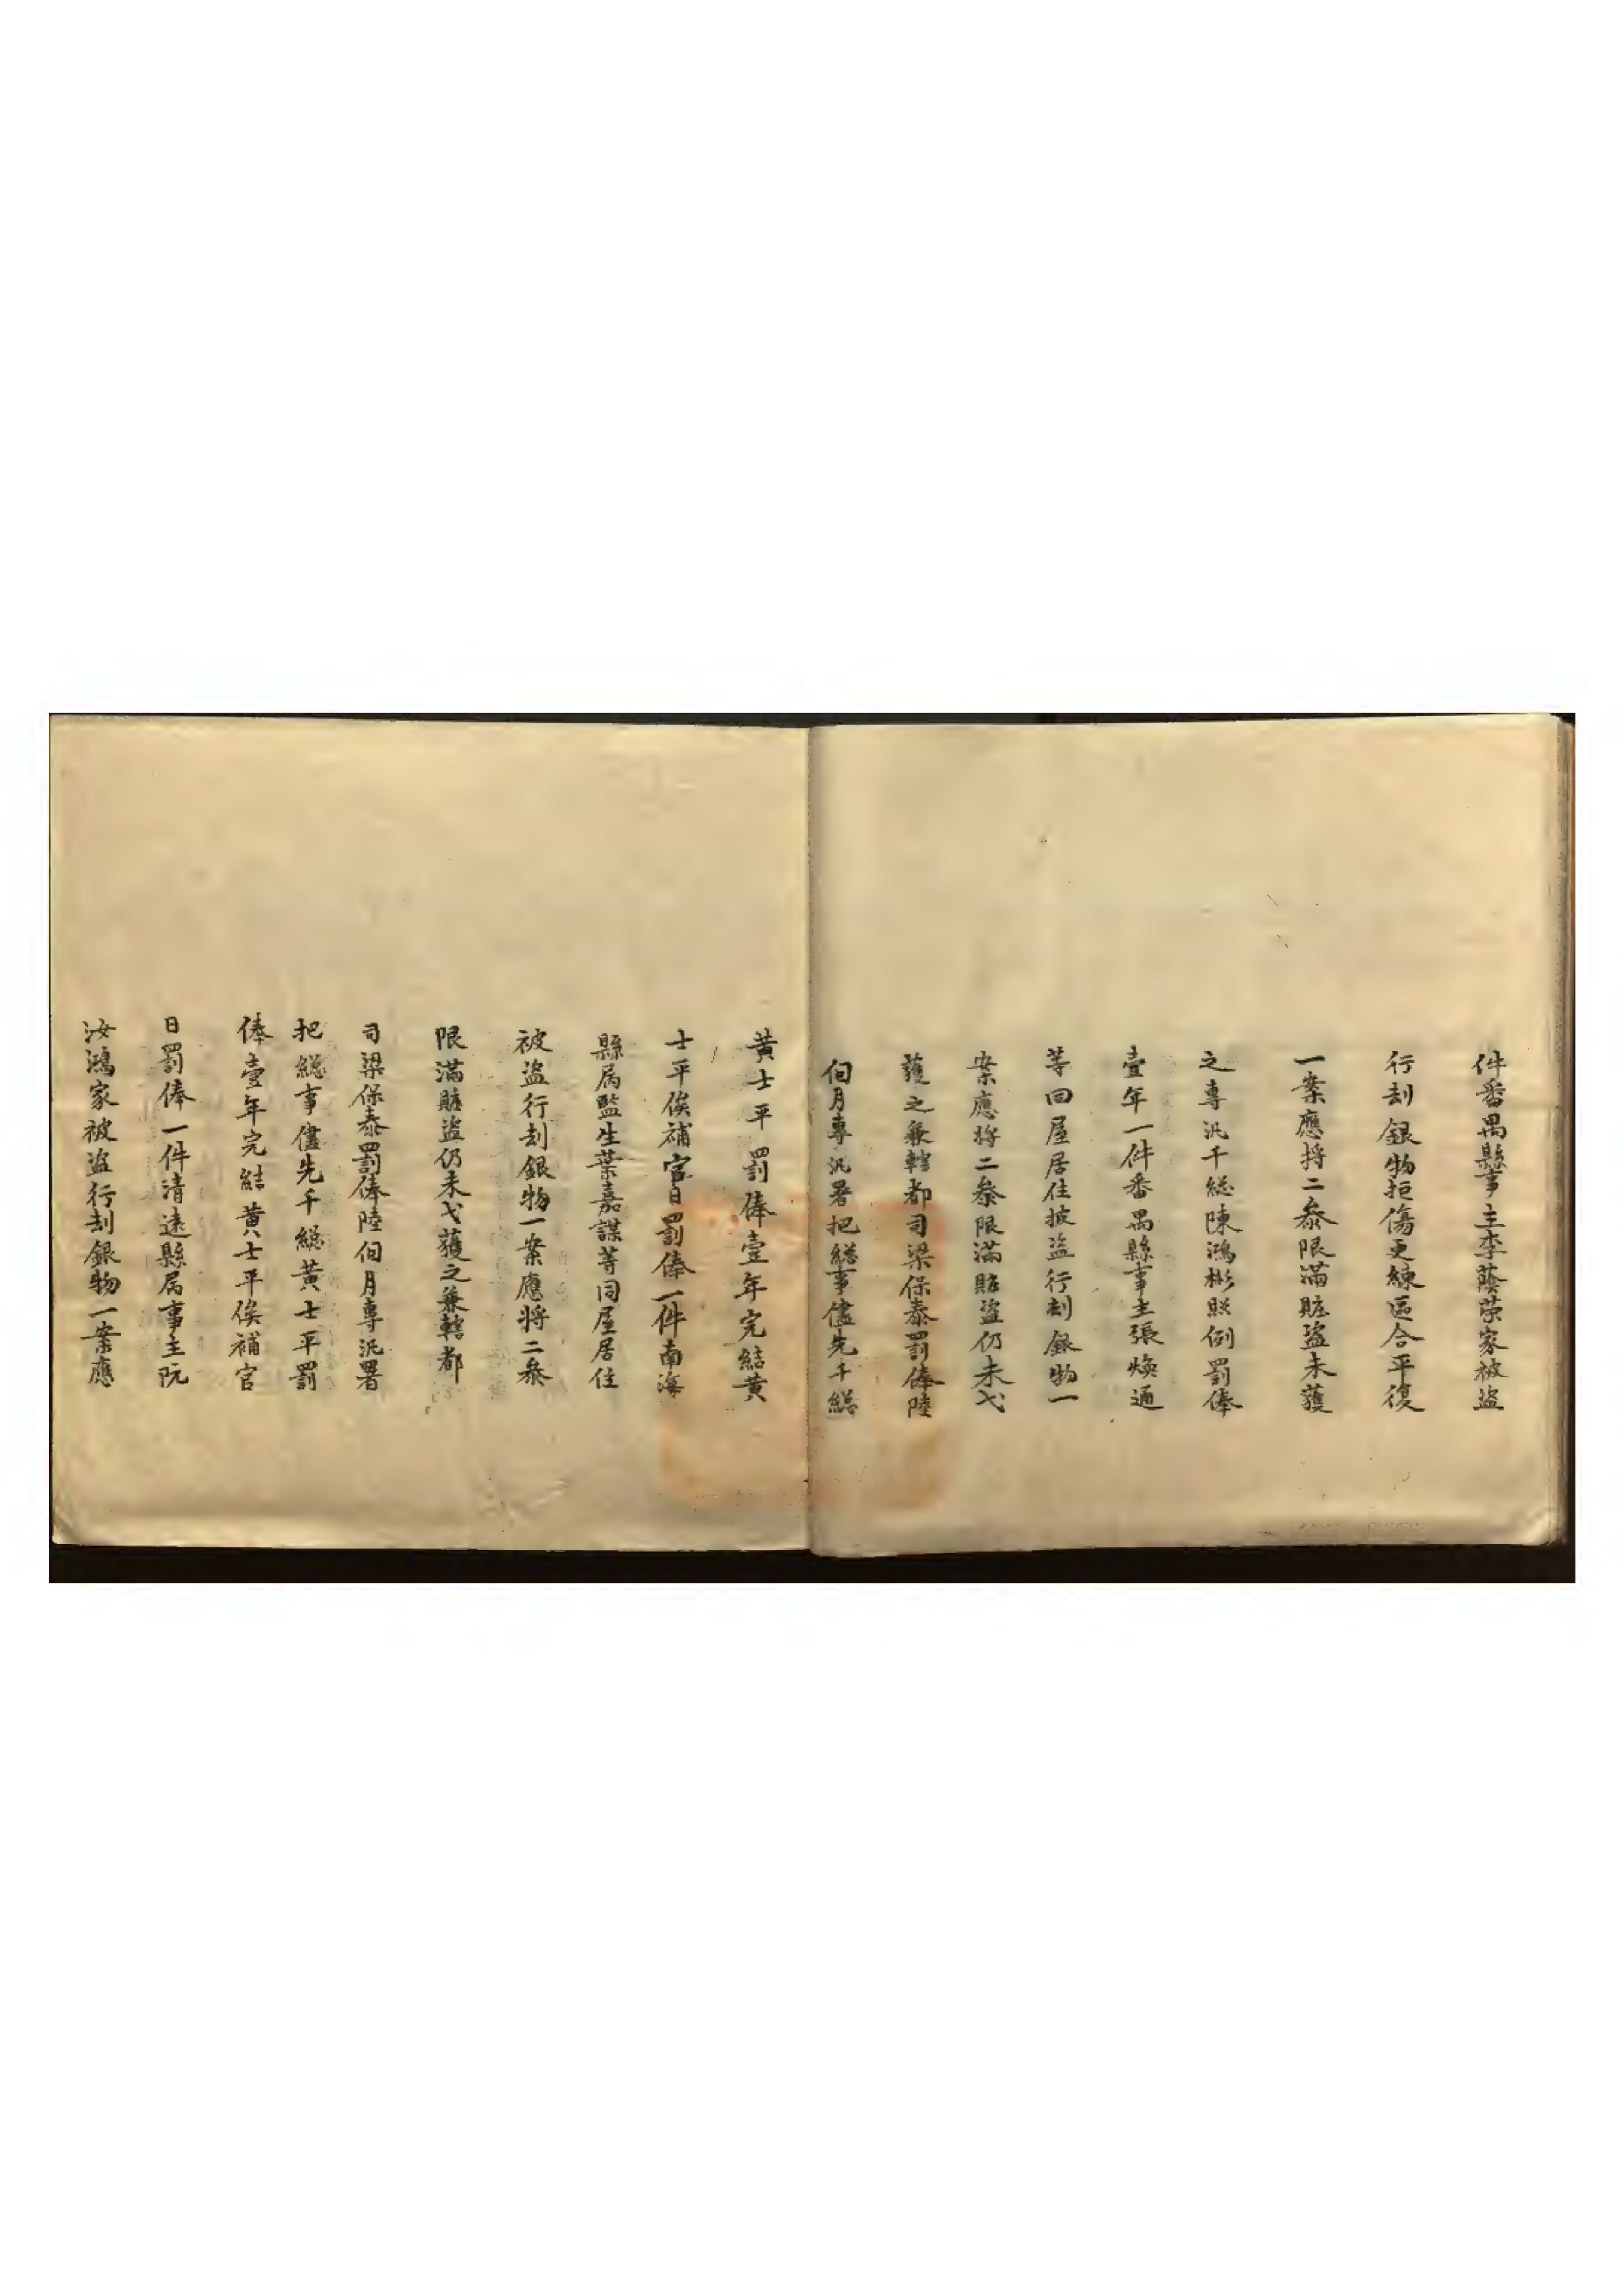 件番禺縣事主李蔭荣家被盗
行刦銀物拒傷更練區合平復
一案應将二叅限滿賍盗未獲
之專汛千総陳鴻彬照例罰俸
壹年一件番禺縣事主張煥通
等回屋居住披盗行刦銀物一
案應将二叅限滿賍盗仍未弋
獲之兼轄都司梁保泰罰俸陸
個月專汛署把總事儘先千總
黄士平罰俸壹年完結黄
士平俟補官日罰俸一件南海
縣属監生葉嘉謀等同屋居住
被盗行刦銀物一案應將二叅
限滿賍盗仍未弋獲之兼轄都
司梁保泰罰俸陸個月專汛署
把總事儘先千總黄士平罰
俸壹年完結黄士平俟補官
日罰俸一件清遠縣属事主阮
汝鴻家被盗行刦銀物一案應